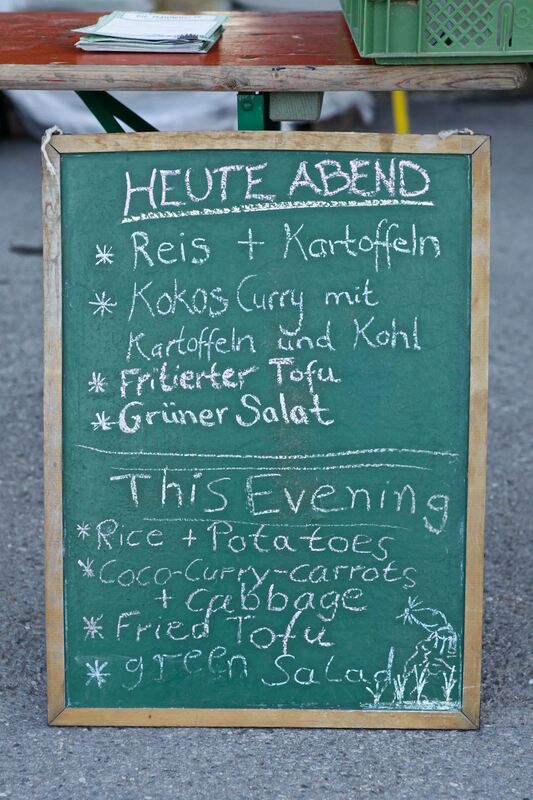 HEUTE ABEND
* Reis + Kartoffeln
* Kokos Curry mit
Kartoffeln und Kohl
* Fritierter Tofu
* Grüner Salat
This Evening
* Rice + Potatoes
* Coco-Curry-carrots
+ cabbage
* Fried Tofu
* green Salad